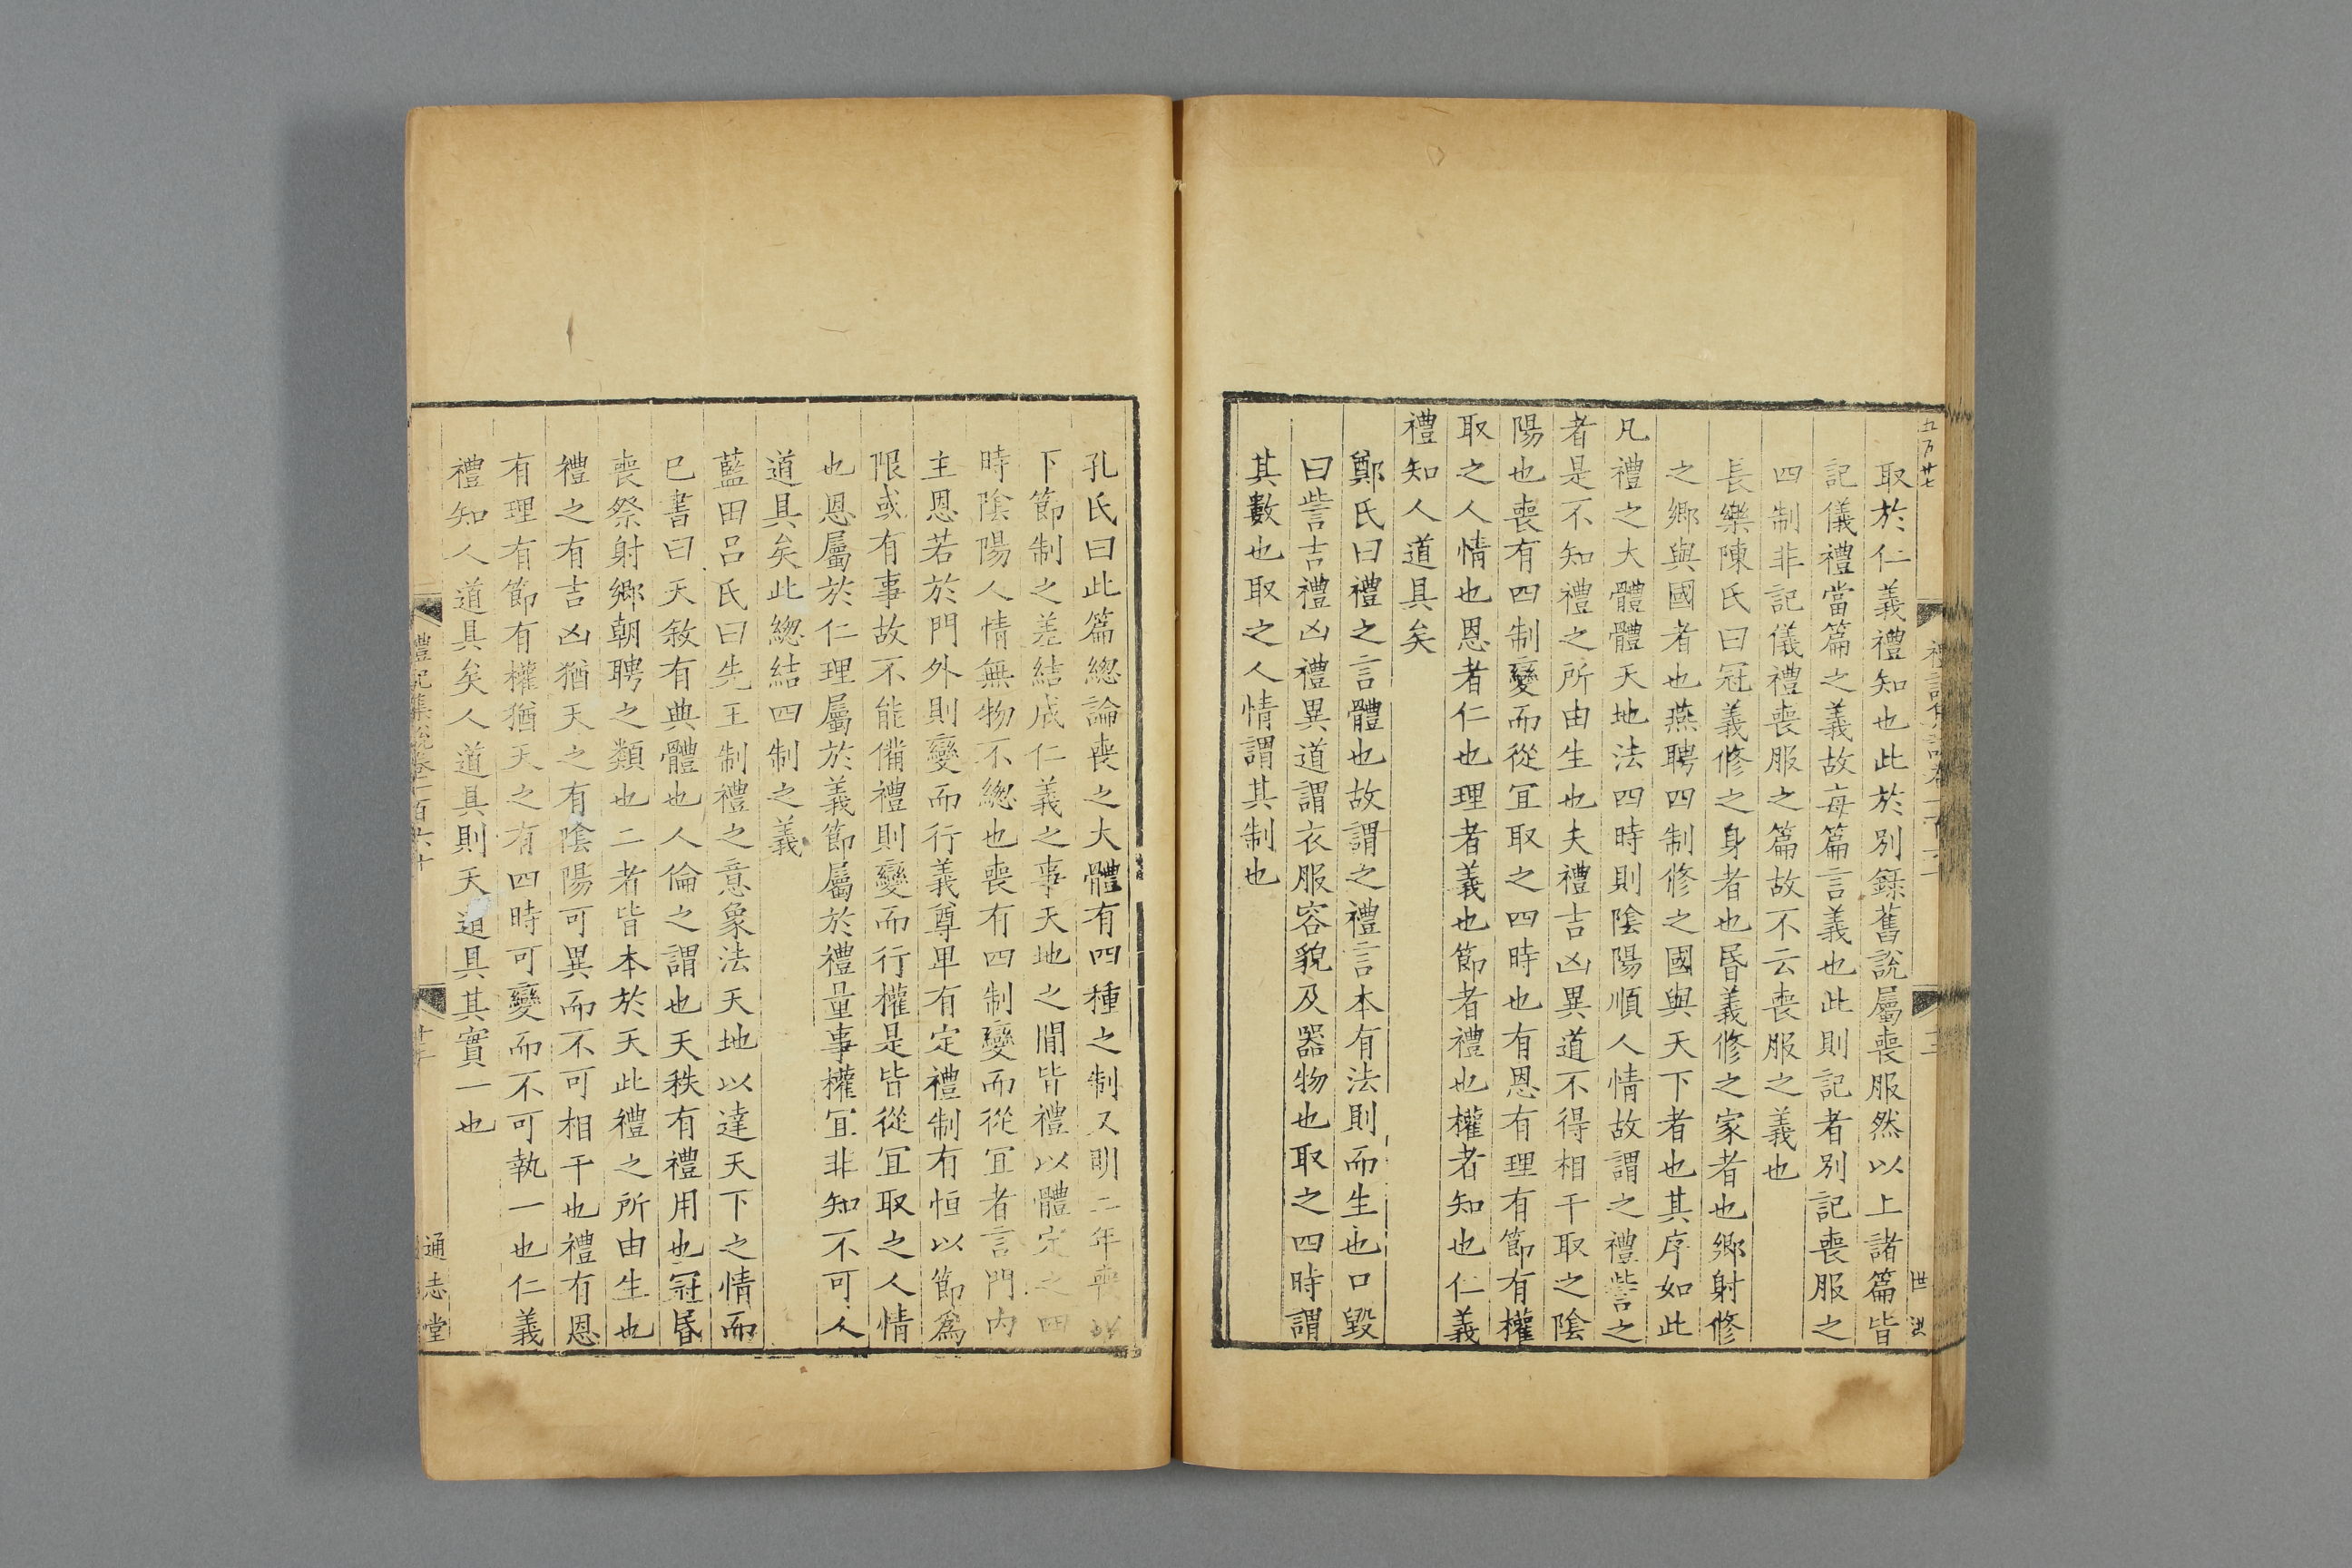 五万廿七
取於仁義禮知也此於別錄舊說屬喪服然以上諸篇皆
記儀禮當篇之義故每篇言義也此則記者別記喪服之
四制非記儀禮喪服之篇故不云喪服之義也
長樂陳氏曰冠義修之身者也昏義修之家者也鄉射修
之鄉與國者也燕聘四制修之國與天下者也其序如此
凡禮之大體體天地法四時則陰陽順人情故謂之禮訾之
者是不知禮之所由生也夫禮吉凶異道不得相干取之陰
陽也喪有四制變而從宜取之四時也有恩有理有節有權
取之人情也恩者仁也理者義也節者禮也權者知也仁義
禮知人道具矣
鄭氏曰禮之言體也故謂之禮言本有法則而生也口毀
曰訾吉禮凶禮異道謂衣服容貌及器物也取之四時謂
其數也取之人情謂其制也
孔氏曰此篇總論喪之大體有四種之制又明三年喪
下節制之差結成仁義之事天地之間皆禮以體定之四
時陰陽人情無物不總也喪有四制變而從宜者言門內
主恩若於門外則變而行義尊卑有定禮制有恒以節爲
限或有事故不能備禮則變而行權是皆從宜取之人情
也恩屬於仁理屬於義節屬於禮量事權宜非知不可人
道具矣此總結四制之義
藍田呂氏曰先王制禮之意象法天地以達天下之情而
已書曰天敘有典體也人倫之謂也天秩有禮用也冠昏
喪祭射鄉朝聘之類也二者皆本於天此禮之所由生也
禮之有吉凶猶天之有陰陽可異而不可相干也禮有恩
有理有節有權猶天之有四時可變而不可執一也仁義
禮知人道具矣人道具則天道具其實一也
禮記集說卷一百六十
通志堂